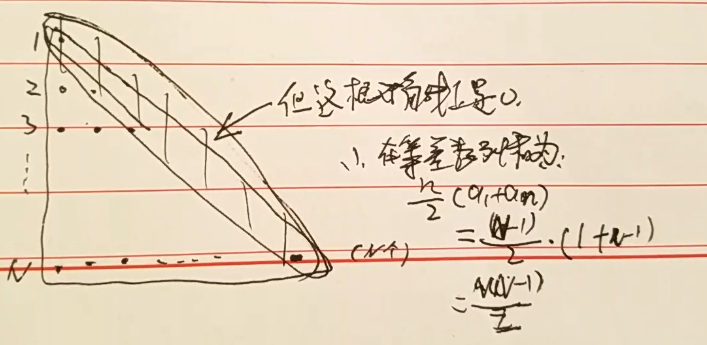 1
2
3
N
(N个)
但这根对角线上是0.
∴ 在等差数列和为:
n/2 (a₁+aₙ)
= (N-1)/2 · (1+N-1)
= N(N-1)/2